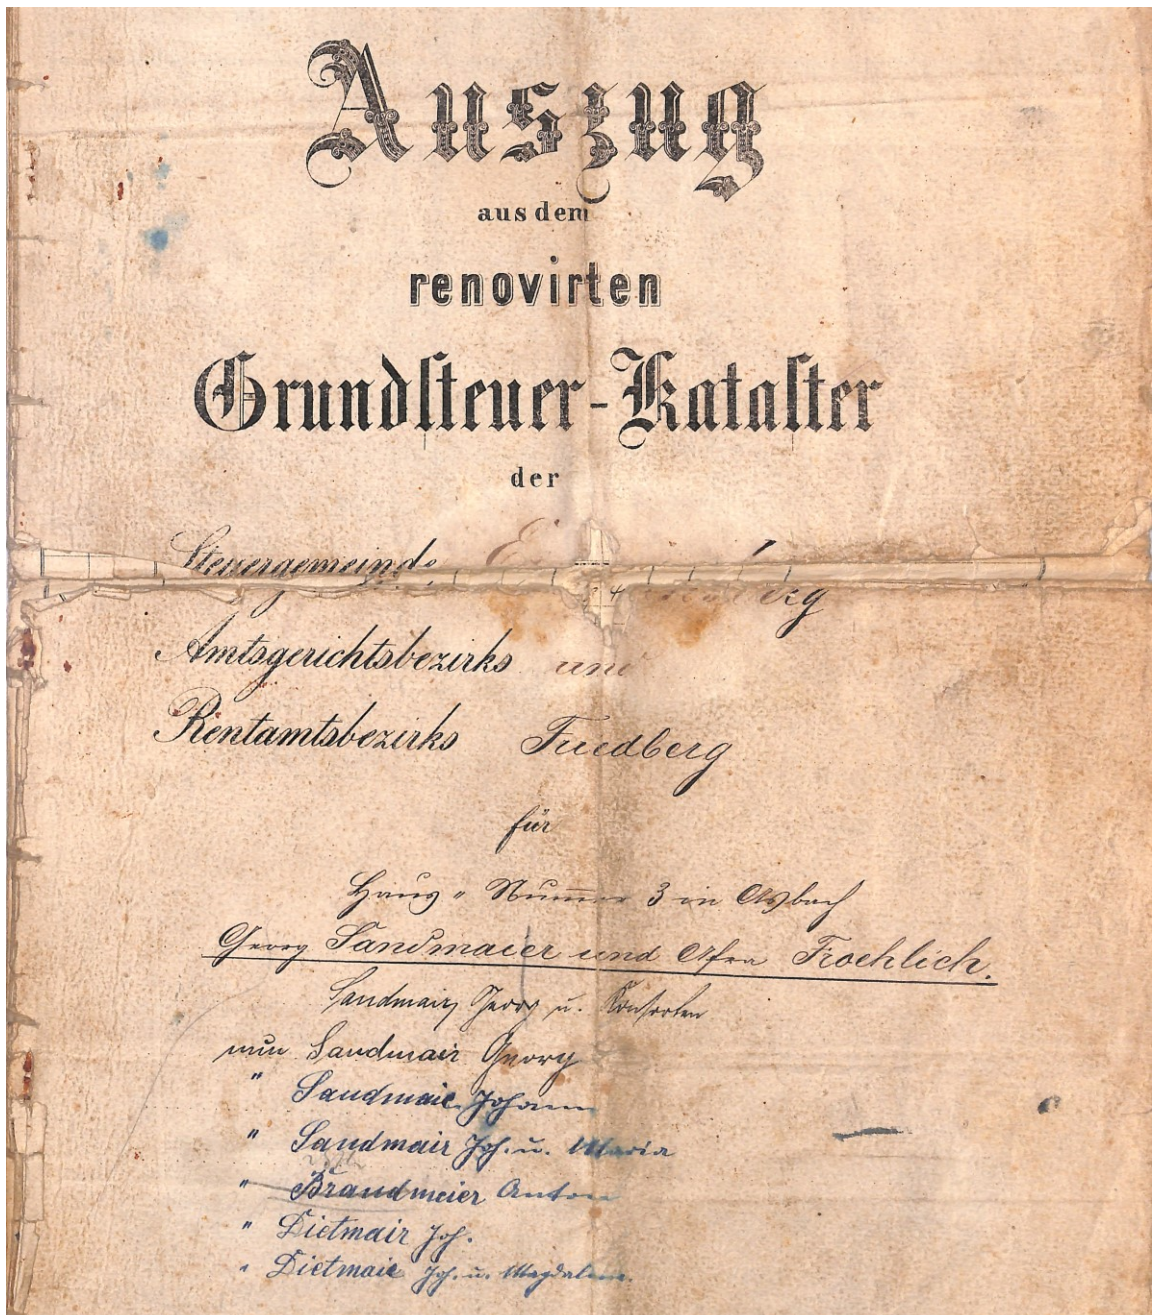 Auszug
aus dem
renovirten
Grundsteuer-Kataster
der
Steuergemeinde
Amtsgerichtsbezirks und
Rentamtsbezirks Friedberg
für
Haus - Nummer 3 in Asbach
Georg Sandmaier und Afra Froehlich.
Sandmair Georg u. Konsorten
nun Sandmair Georg
" Sandmair Johann
" Sandmair Joh. u. Maria
" Brandmeier Anton
" Dietmair Joh.
" Dietmair Joh. u. Magdalena.